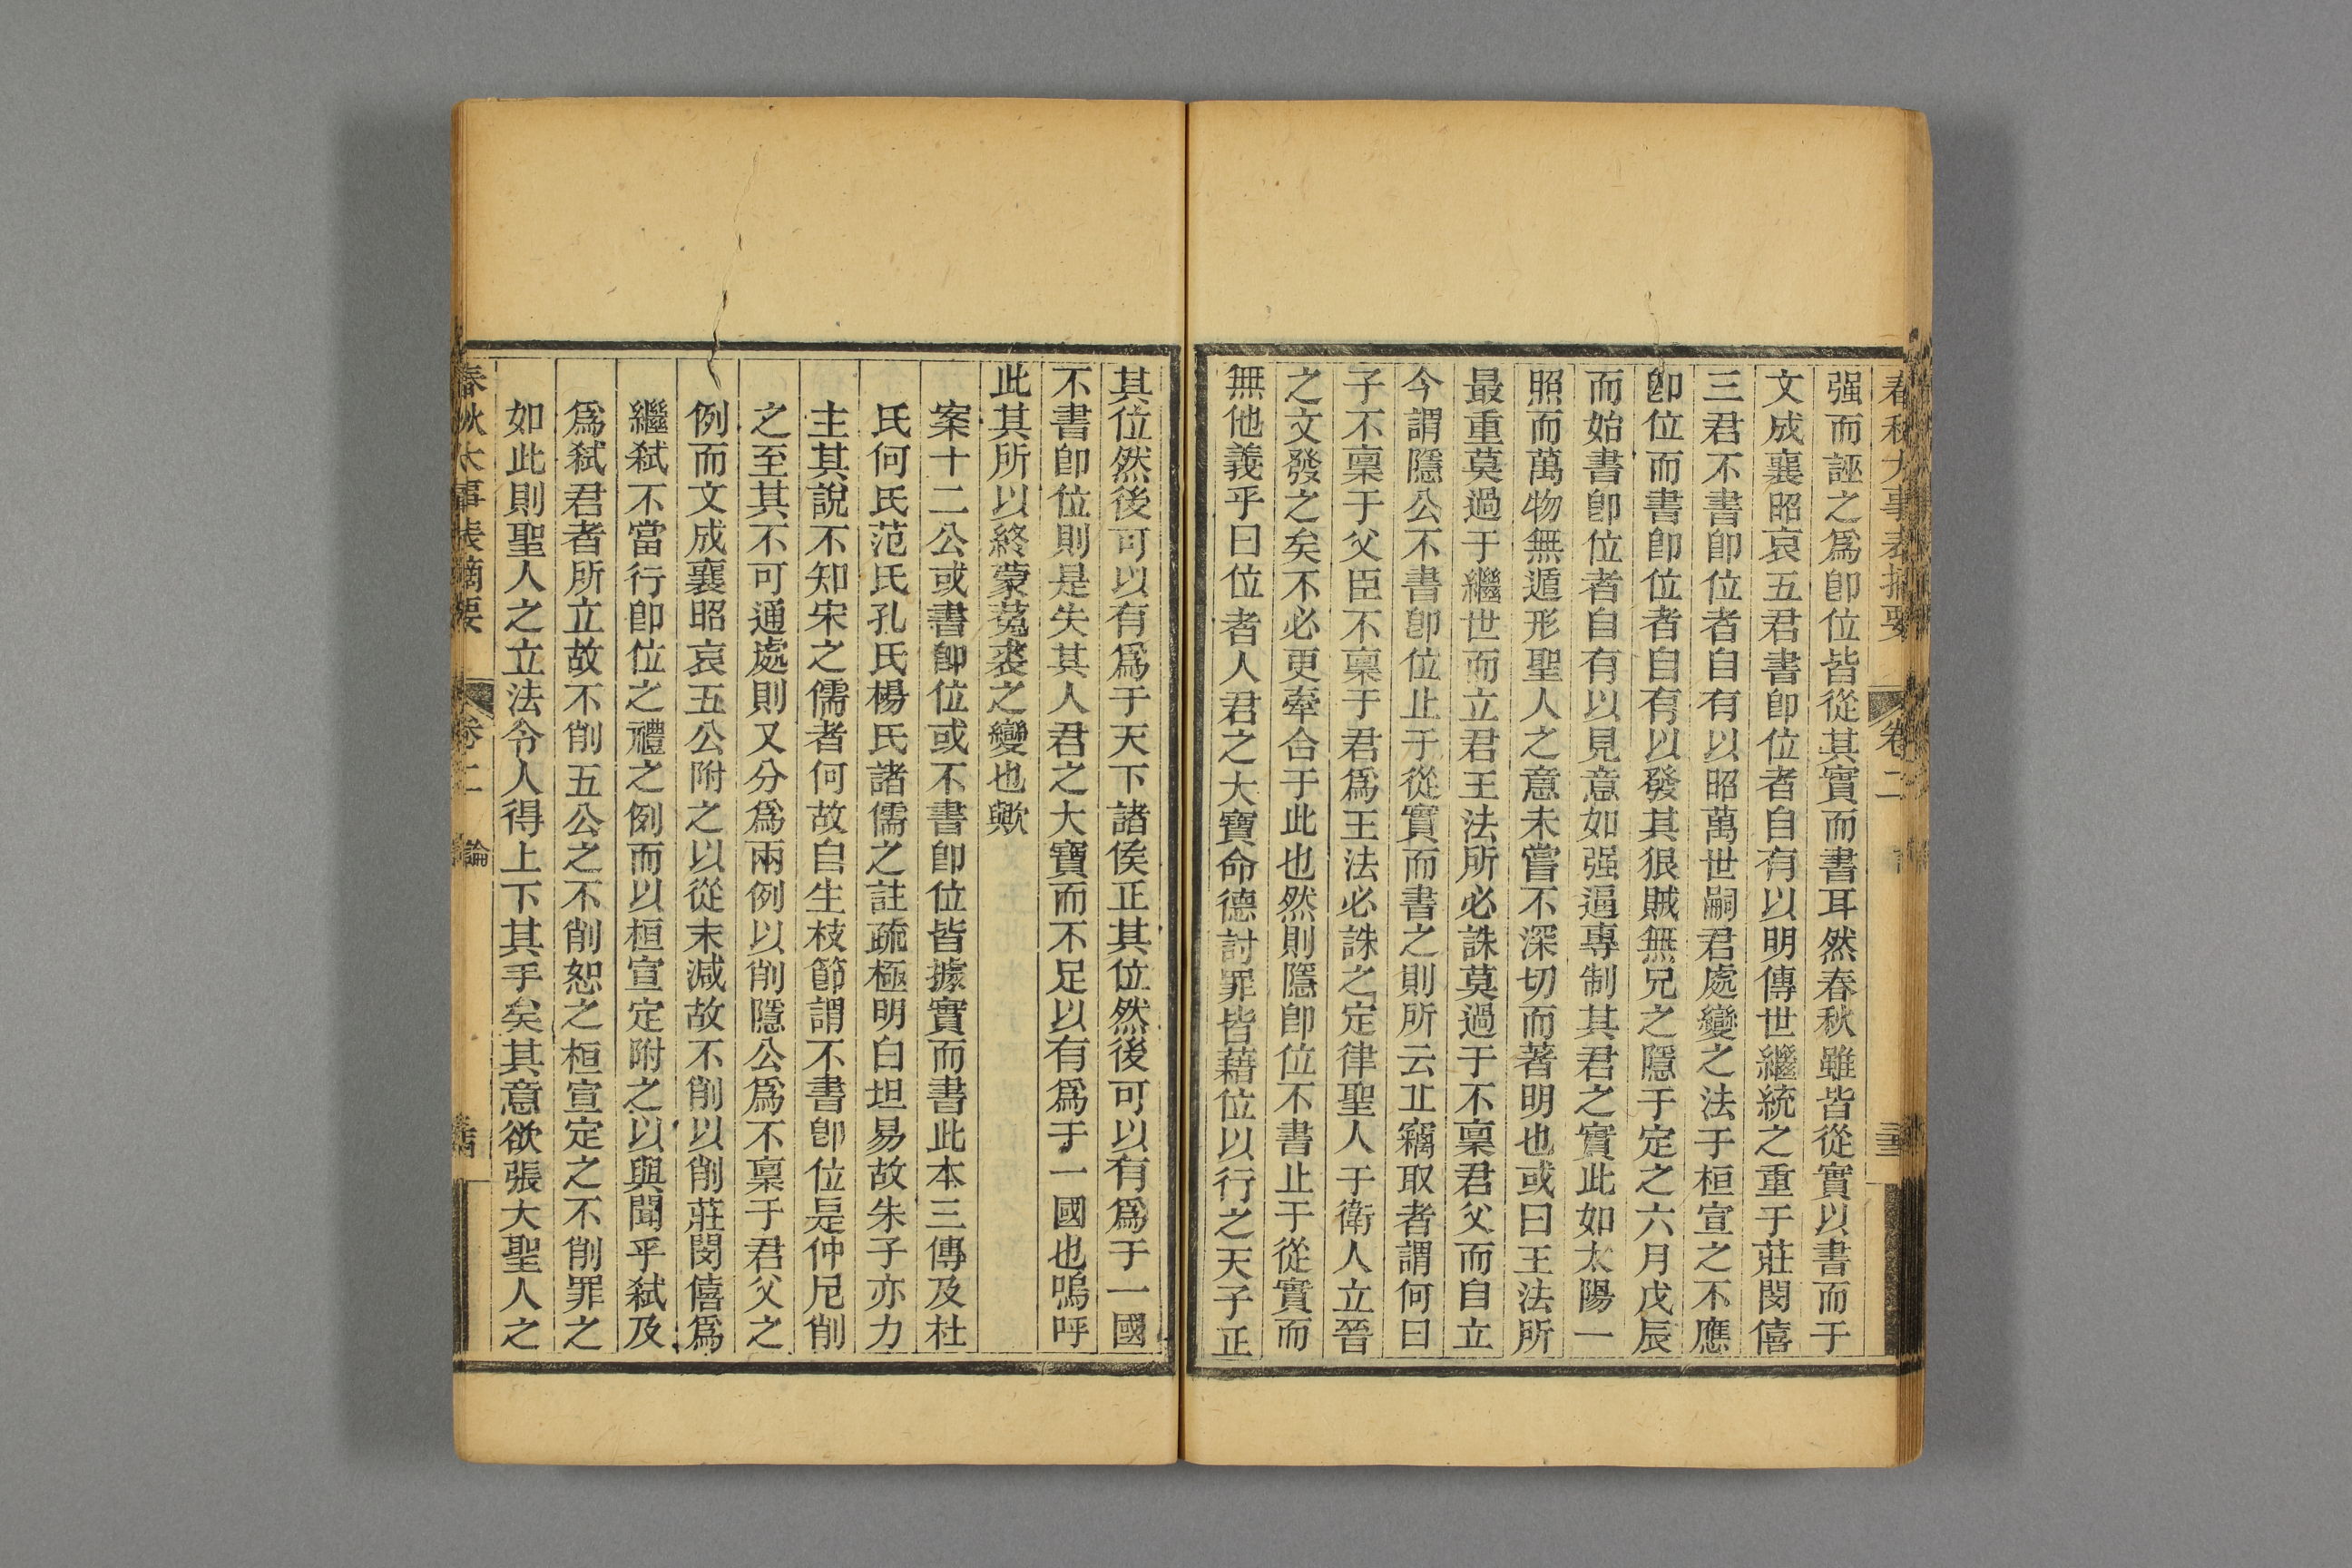 春秋大事表摘要 卷二
强而誣之爲卽位皆從其實而書耳然春秋雖皆從實以書而于
文成襄昭哀五君書卽位者自有以明傳世繼統之重于莊閔僖
三君不書卽位者自有以昭萬世嗣君處變之法于桓宣之不應
卽位而書卽位者自有以發其狠賊無兄之隱于定之六月戊辰
而始書卽位者自有以見意如强逼專制其君之實此如太陽一
照而萬物無遁形聖人之意未嘗不深切而著明也或曰王法所
最重莫過于繼世而立君王法所必誅莫過于不稟君父而自立
今謂隱公不書卽位止于從實而書之則所云正竊取者謂何曰
子不稟于父臣不稟于君爲王法必誅之定律聖人于衛人立晉
之文發之矣不必更牽合于此也然則隱卽位不書止于從實而
無他義乎曰位者人君之大寶命德討罪皆藉位以行之天子正
其位然後可以有爲于天下諸侯正其位然後可以有爲于一國
不書卽位則是失其人君之大寶而不足以有爲于一國也嗚呼
此其所以終蒙菟裘之變也歟
案十二公或書卽位或不書卽位皆據實而書此本三傳及杜
氏何氏范氏孔氏楊氏諸儒之註疏極明白坦易故朱子亦力
主其說不知宋之儒者何故自生枝節謂不書卽位是仲尼削
之至其不可通處則又分爲兩例以削隱公爲不稟于君父之
例而文成襄昭哀五公附之以從末減故不削以削莊閔僖爲
繼弒不當行卽位之禮之例而以桓宣定附之以與聞乎弒及
爲弒君者所立故不削五公之不削恕之桓宣定之不削罪之
如此則聖人之立法令人得上下其手矣其意欲張大聖人之
春秋大事表摘要 卷二 論